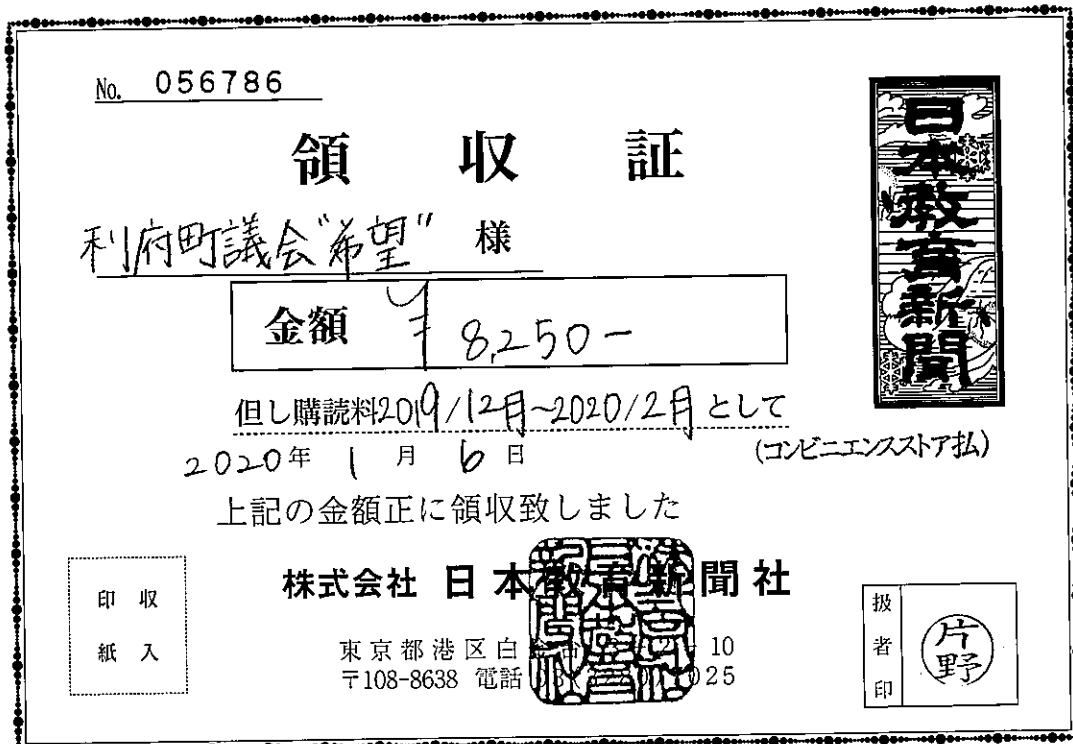 No. 056786
領収証
利府町議会"希望" 様
金額 ¥8,250-
但し購読料2019/12月~2020/2月として
(コンビニエンスストア払)
2020年 1月 6日
上記の金額正に領収致しました
日本教育新聞
株式会社 日本教育新聞社
東京都港区白 10
〒108-8638 電話 025
収入
印紙
扱者印
片野